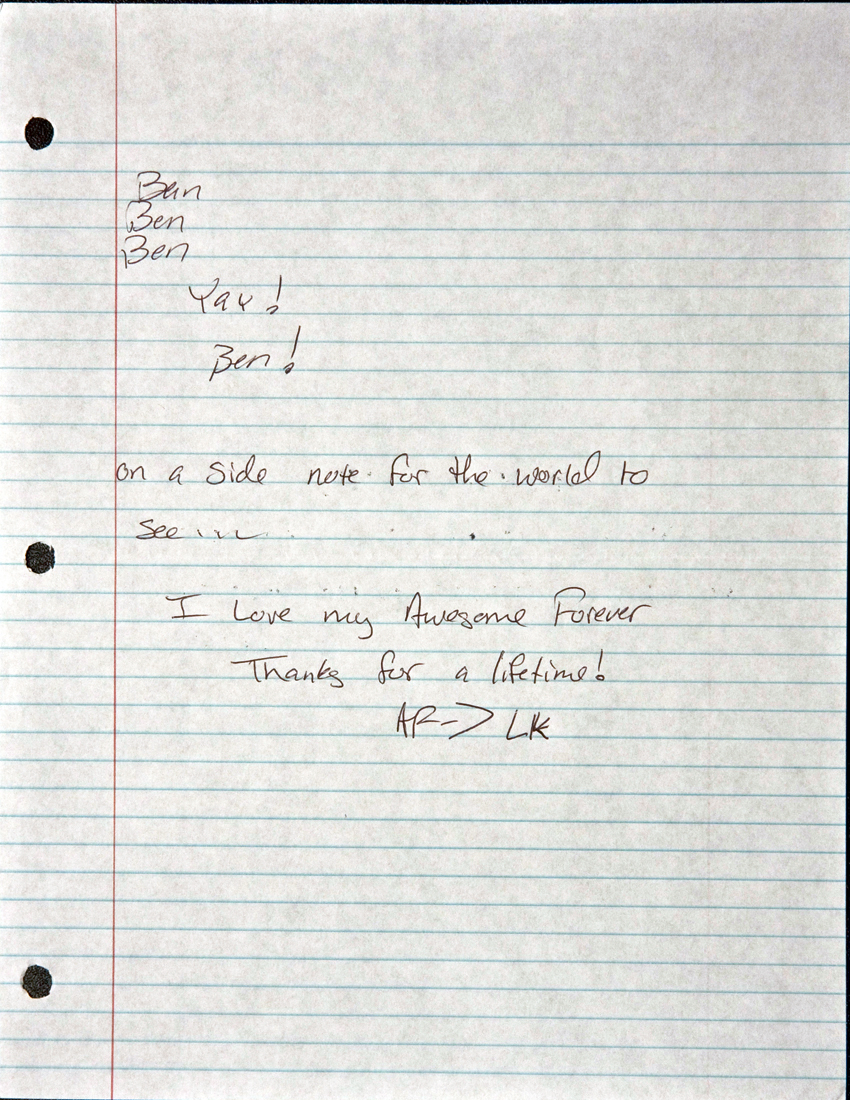 Ben
Ben
Ben
Yay!
Ben!
on a side note for the world to
see....
I Love my Awesome Forever
Thanks for a lifetime!
AF-> LK